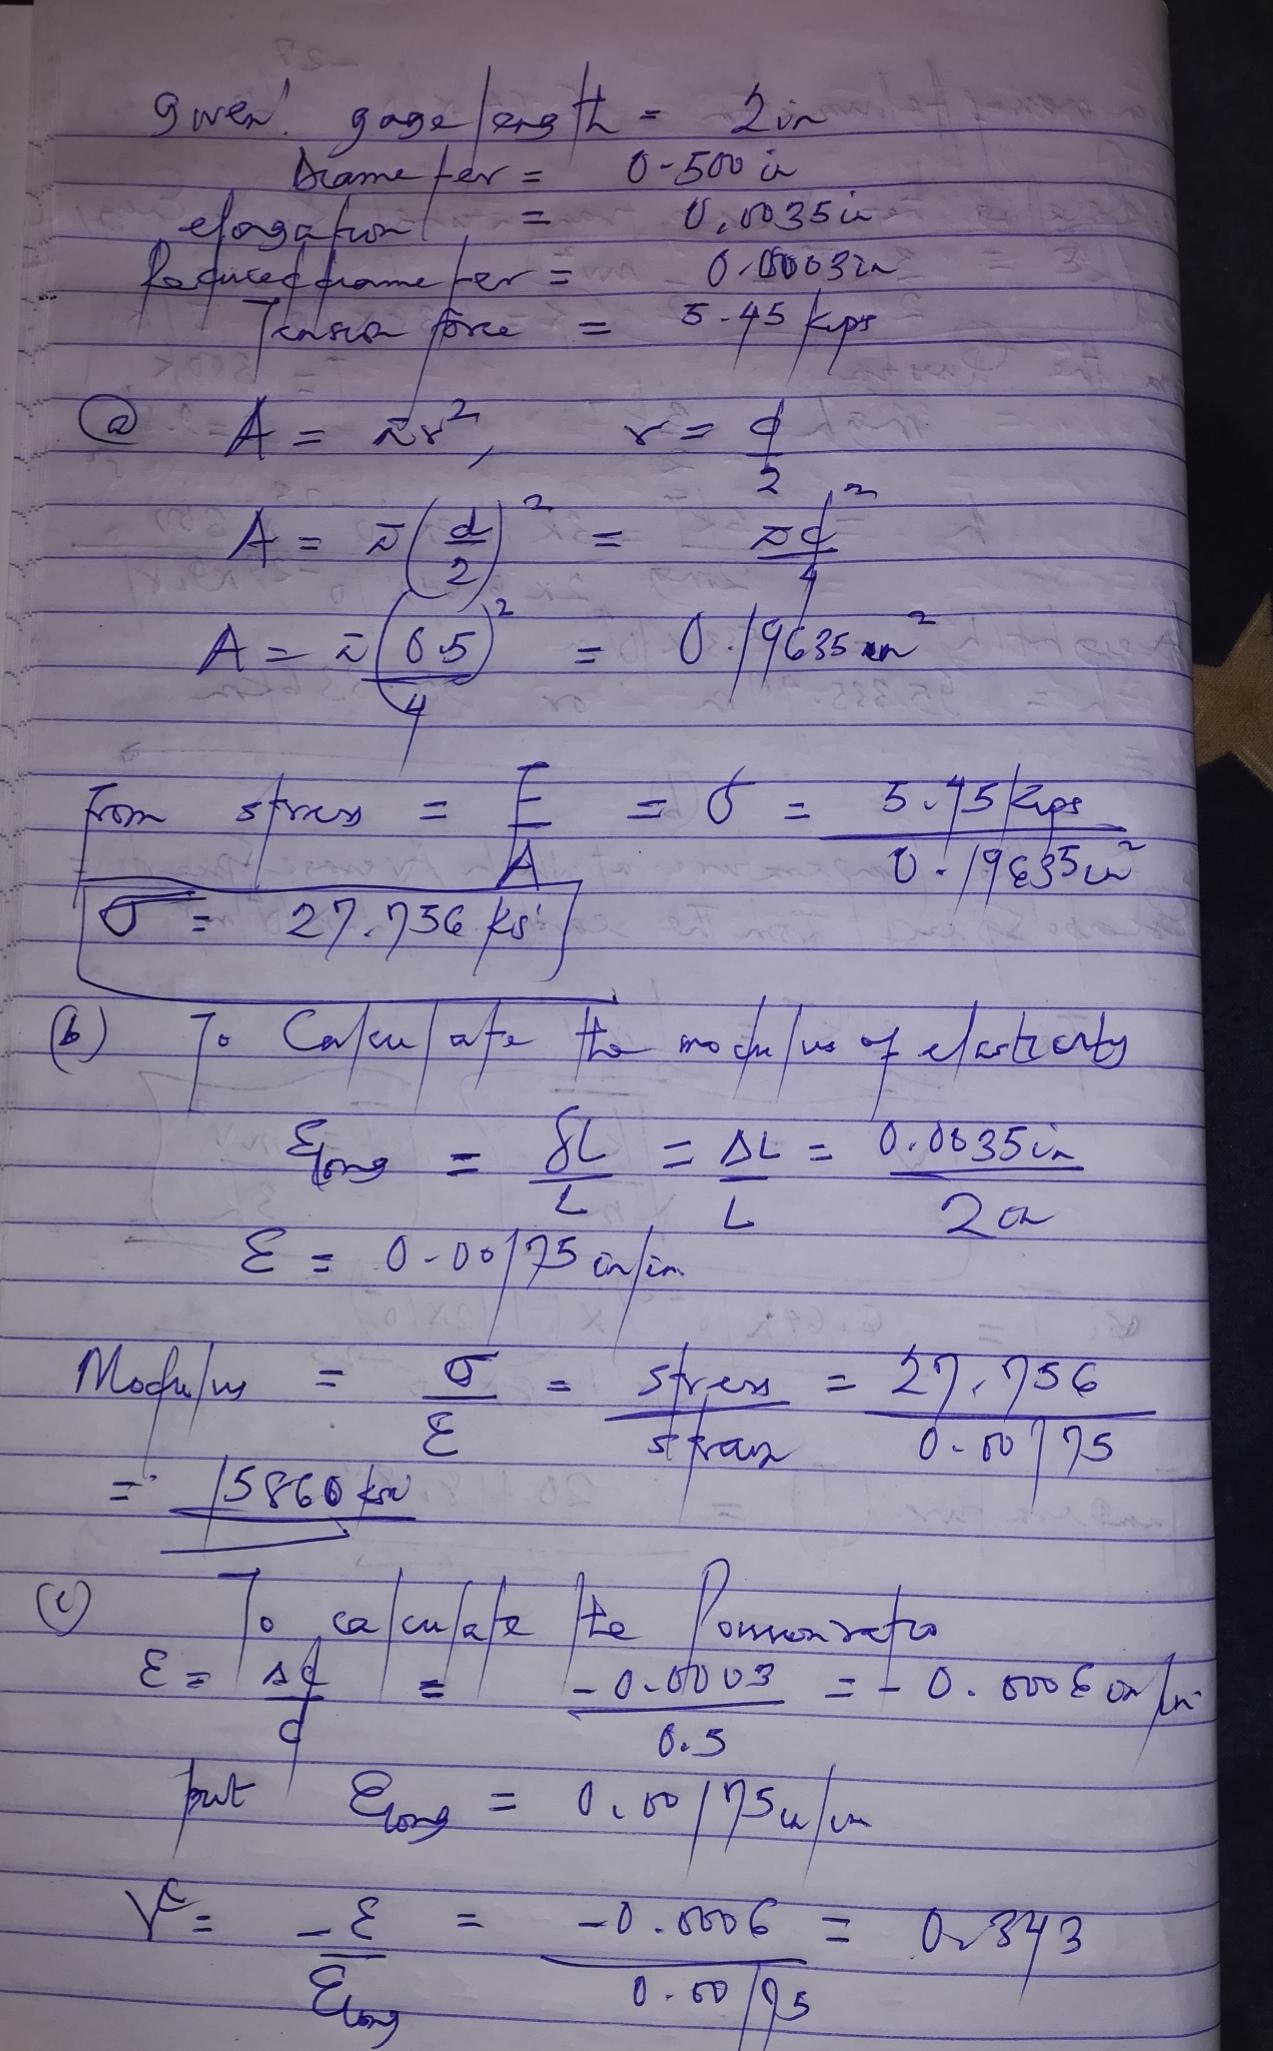 given: gage length = 2in
Diameter = 0-500 in
elongation = 0.0035in
Reduced diameter = 0.0003in
Tension force = 5.45 kips
(a) A = πr², r = d/2
A = π(d/2)² = πd²/4
A = π(0.5)²/4 = 0.19635 in²
From stress = F/A = σ = 5.45 kips/0.19635in²
σ = 27.756 ksi
(b) To Calculate the modulus of elasticity
εlong = δL/L = ΔL/L = 0.0035in/2in
ε = 0-00175 in/in
Modulus = σ/ε = stress/strain = 27.756/0.00175
= 15860 ksi
(c) To calculate the Poisson ratio
ε = Δd/d = -0.0003/0.5 = -0.0006 in/in
but εlong = 0.00175in/in
V = -ε/εlong = -0.0006/0.00175 = 0.343